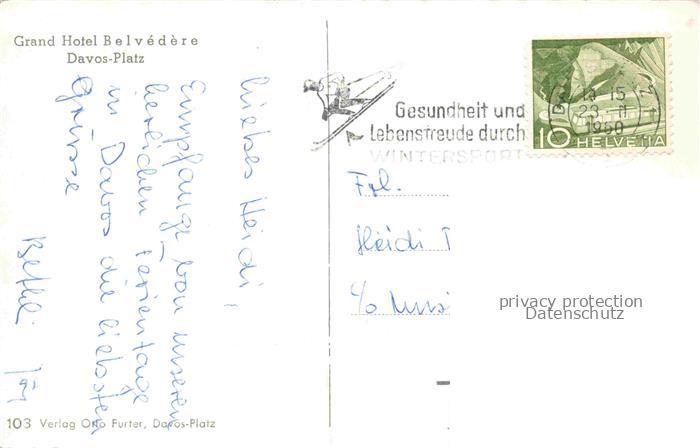 Grand Hotel Belvédère
Davos-Platz
Liebes Heidi,
Empfange von unseren
herrlichen Ferientage
in Davos die liebsten
Grüsse
Bethli
103 Verlag Otto Furter, Davos-Platz
Gesundheit und
Lebensfreude durch
WINTERSPORT
15
23 II
1950
10 HELVETIA
Frl.
Heidi
c/o
privacy protection
Datenschutz